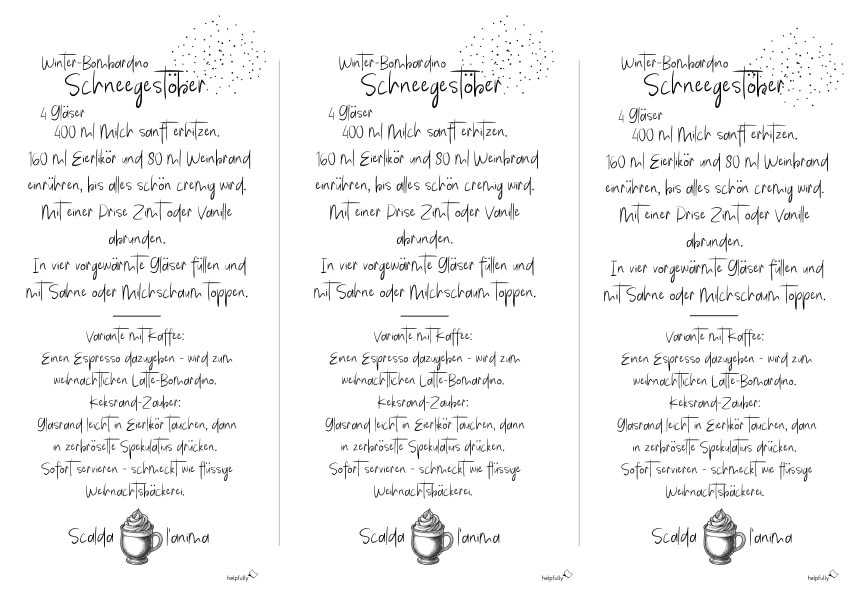 Winter-Bombardino
Schneegestöber
4 Gläser
400 ml Milch sanft erhitzen.
160 ml Eierlikör und 80 ml Weinbrand
einrühren, bis alles schön cremig wird.
Mit einer Prise Zimt oder Vanille
abrunden.
In vier vorgewärmte Gläser füllen und
mit Sahne oder Milchschaum toppen.
Variante mit Kaffee:
Einen Espresso dazugeben - wird zum
weihnachtlichen Latte-Bomardino.
Keksrand-Zauber:
Glasrand leicht in Eierlikör tauchen, dann
in zerbröselte Spekulatius drücken.
Sofort servieren - schmeckt wie flüssige
Weihnachtsbäckerei.
Scalda l'anima
helpfully
Winter-Bombardino
Schneegestöber
4 Gläser
400 ml Milch sanft erhitzen.
160 ml Eierlikör und 80 ml Weinbrand
einrühren, bis alles schön cremig wird.
Mit einer Prise Zimt oder Vanille
abrunden.
In vier vorgewärmte Gläser füllen und
mit Sahne oder Milchschaum toppen.
Variante mit Kaffee:
Einen Espresso dazugeben - wird zum
weihnachtlichen Latte-Bomardino.
Keksrand-Zauber:
Glasrand leicht in Eierlikör tauchen, dann
in zerbröselte Spekulatius drücken.
Sofort servieren - schmeckt wie flüssige
Weihnachtsbäckerei.
Scalda l'anima
helpfully
Winter-Bombardino
Schneegestöber
4 Gläser
400 ml Milch sanft erhitzen.
160 ml Eierlikör und 80 ml Weinbrand
einrühren, bis alles schön cremig wird.
Mit einer Prise Zimt oder Vanille
abrunden.
In vier vorgewärmte Gläser füllen und
mit Sahne oder Milchschaum toppen.
Variante mit Kaffee:
Einen Espresso dazugeben - wird zum
weihnachtlichen Latte-Bomardino.
Keksrand-Zauber:
Glasrand leicht in Eierlikör tauchen, dann
in zerbröselte Spekulatius drücken.
Sofort servieren - schmeckt wie flüssige
Weihnachtsbäckerei.
Scalda l'anima
helpfully